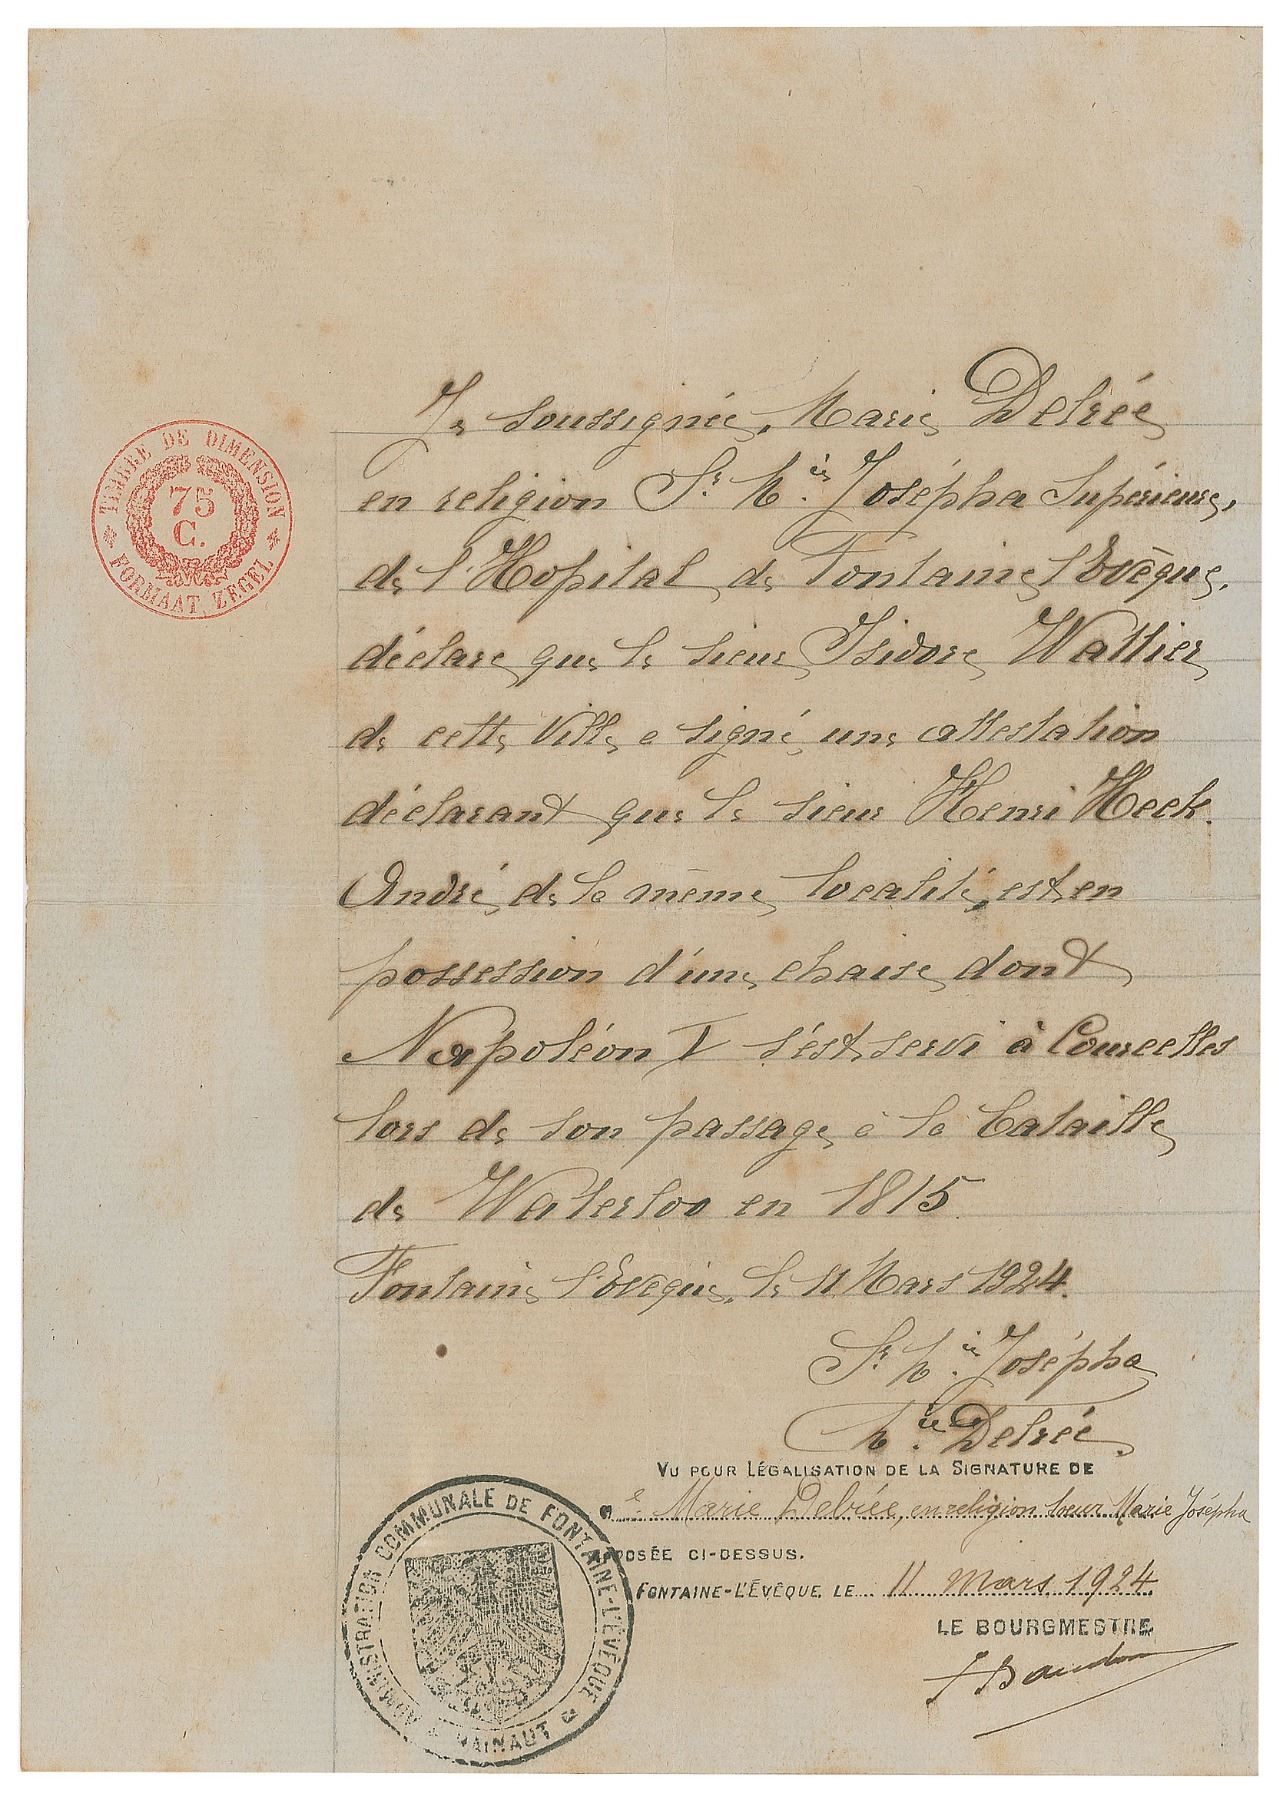 TIMBRE DE DIMENSION
75
C.
FORMAAT ZEGEL
Je soussignée, Marie Delrée
en religion Sr. M.ie Josépha Supérieure,
de l'Hopital de Fontaine l'Evèque,
déclare que le sieur Isidore Wattier
de cette Ville a signé une attestation
déclarant que le sieur Henri Heck.
André, de la même localité, est en
possession d'une chaise dont
Napoléon I s'est servi à Courcelles
lors de son passage à la bataille
de Waterloo en 1815.
Fontaine l'Evèque, le 11 Mars 1924.
Sr. M.ie Josépha
M.ie Delrée.
VU POUR LÉGALISATION DE LA SIGNATURE DE
Marie Delrée, en religion soeur Marie Josépha
APPOSÉE CI-DESSUS.
FONTAINE-L'ÉVÊQUE, LE 11 mars 1924
LE BOURGMESTRE
ADMINISTRATION COMMUNALE DE FONTAINE-L'ÉVÊQUE
HAINAUT